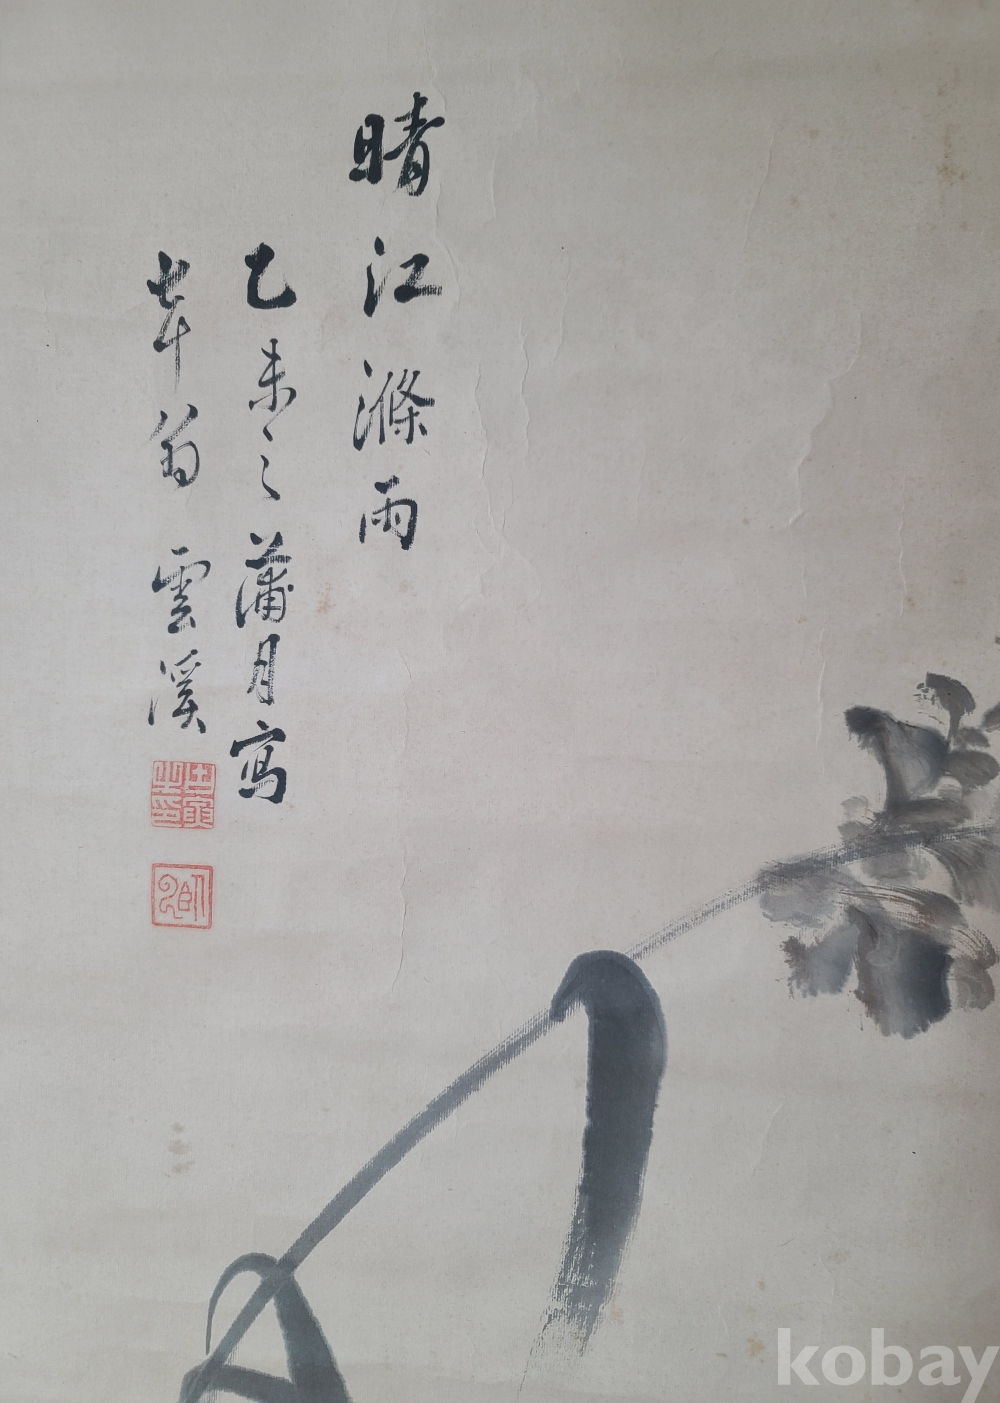 晴江滌雨
乙未之蒲月寫
幸翁雲溪
kobay